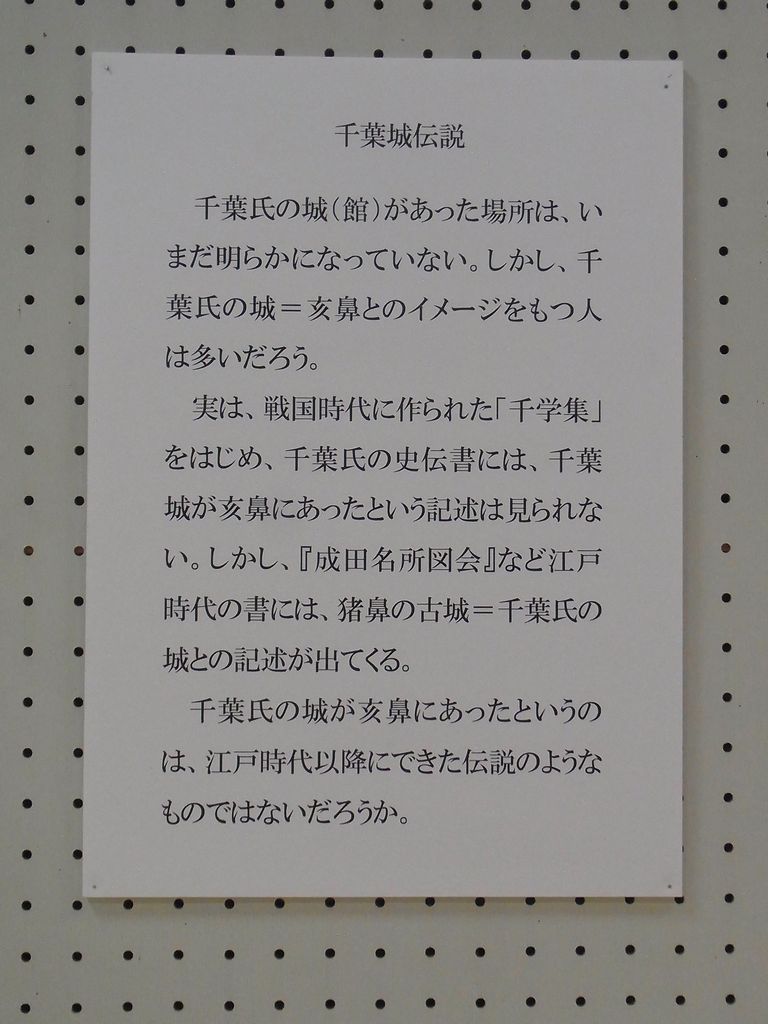 千葉城伝説
千葉氏の城（館）があった場所は、い
まだ明らかになっていない。しかし、千
葉氏の城＝亥鼻とのイメージをもつ人
は多いだろう。
実は、戦国時代に作られた「千学集」
をはじめ、千葉氏の史伝書には、千葉
城が亥鼻にあったという記述は見られな
い。しかし、『成田名所図会』など江戸
時代の書には、猪鼻の古城＝千葉氏の
城との記述が出てくる。
千葉氏の城が亥鼻にあったというの
は、江戸時代以降にできた伝説のような
ものではないだろうか。